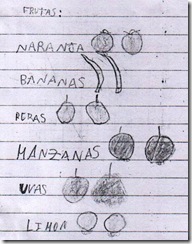 FRUTAS:
NARANJA
BANANAS
PERAS
MANZANAS
UVAS
LIMON